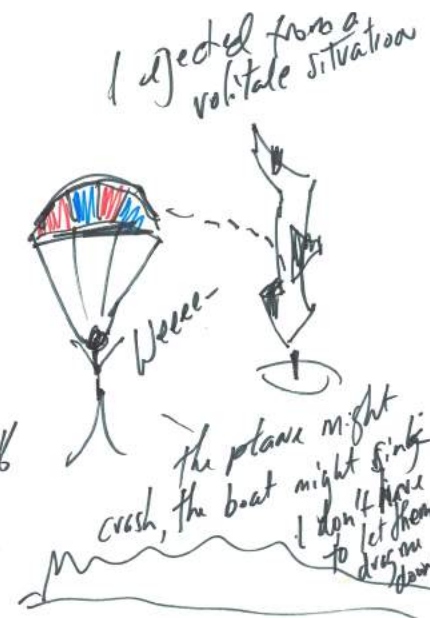 I ejected from a
volitale situation
Weeee-
the plane might
crash, the boat might sink
I don't have
to let them
drag me
down